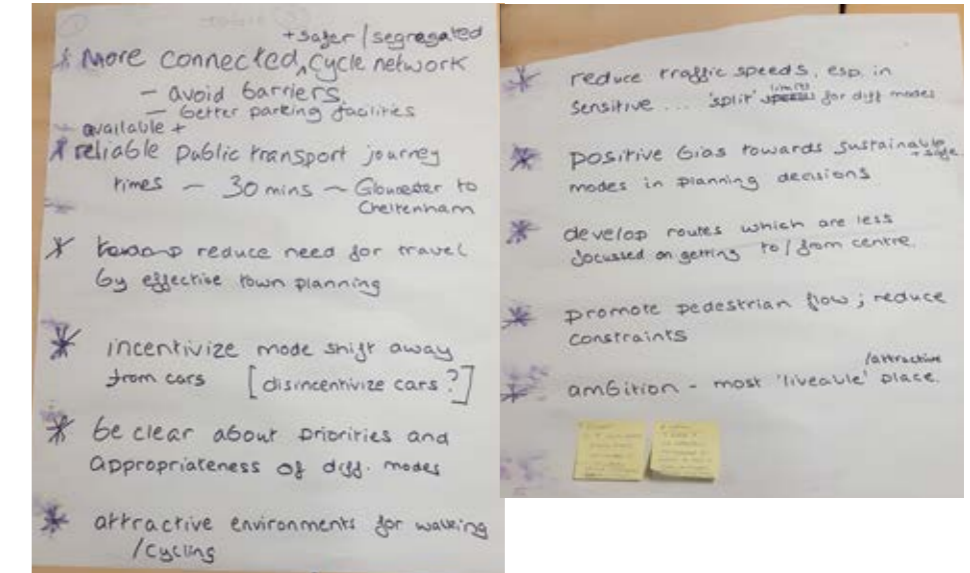 +safer/segregated
* More connected, cycle network
- avoid barriers
- better parking facilities
available +
* reliable public transport journey
times - 30 mins ~ Gloucester to
Cheltenham
* reduce need for travel
by effective town planning
* incentivize mode shift away
from cars [disincentivize cars?]
* be clear about priorities and
appropriateness of diff. modes
* attractive environments for walking
/cycling
* reduce traffic speeds, esp. in
limits
sensitive ... 'split' speeds for diff modes
* positive bias towards sustainable
+ safe
modes in planning decisions
* develop routes which are less
focussed on getting to/from centre.
* promote pedestrian flow; reduce
constraints
/attractive
* ambition - most 'liveable' place.